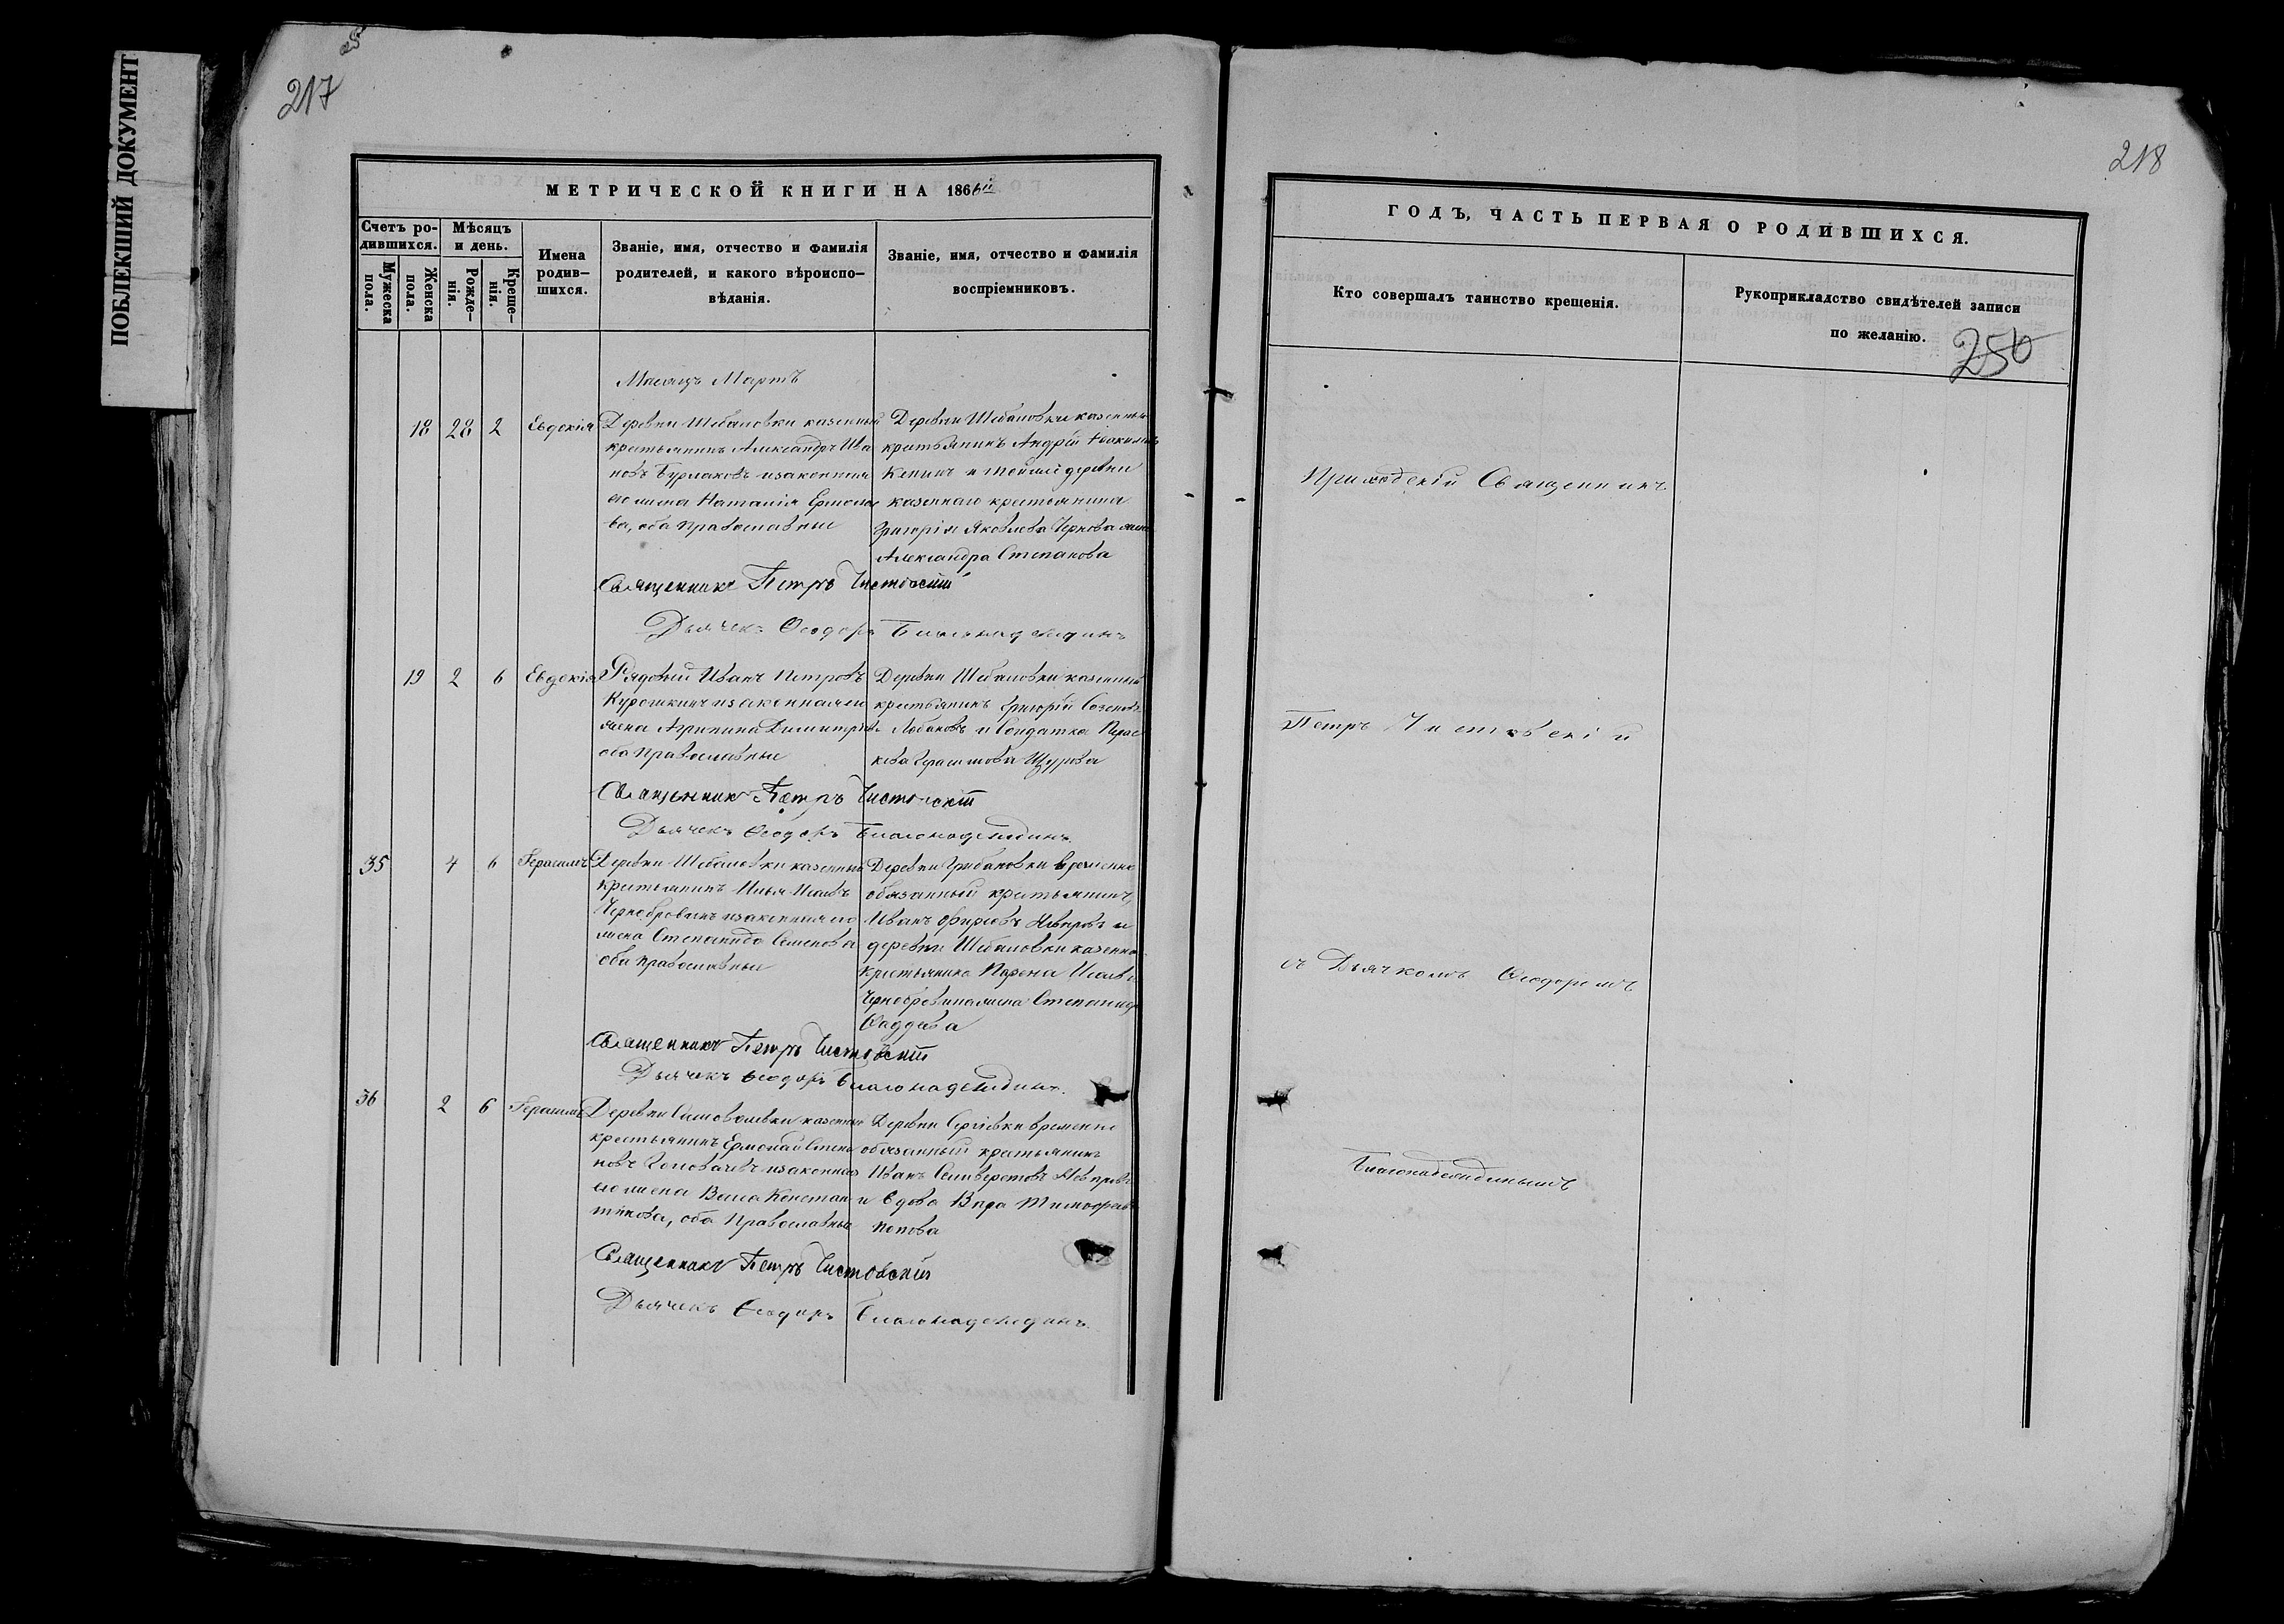 ПОБЛЕКШИЙ ДОКУМЕНТ
217
МЕТРИЧЕСКОЙ КНИГИ НА 1866й
Счетъ ро-
дившихся.
Мужеска
пола.
Женска
пола.
Мѣсяцъ
и день.
Рожде-
нія.
Креще-
нія.
Имена
родив-
шихся.
Званіе, имя, отчество и фамилія
родителей, и какого вѣроиспо-
вѣданія.
Званіе, имя, отчество и фамилія
воспріемниковъ.
Мѣсяцъ Мартъ
18 28 2 Евдокія
Деревни Шебановки казенный
крестьянинъ Александръ Ива
новъ Бурлаковъ и законная
его жена Наталія Ермола
ва, оба Православные
Деревни Шебановки казенный
крестьянинъ Андрей
и той же деревни
казеннаго крестьянина
Григорія Яковлева Чернова жена
Александра Степанова
Священникъ Петръ Чистовскій
Дьячекъ Ѳеодоръ Благонадеждинъ
19 2 6 Евдокія
Рядовый Иванъ Петровъ
Курочкинъ и законная его
жена Агрипина Димитріева
оба Православные
Деревни Шебановки казенный
крестьянинъ Григорій
Лобановъ и Солдатка Парас
кева Герасимова Щурова
Священникъ Петръ Чистовскій
Дьячекъ Ѳеодоръ Благонадеждинъ
35 4 6 Герасимъ
Деревни Шебановки казенный
крестьянинъ Илья Исаевъ
Чернобровинъ и законная его
жена Степанида Семенова
оба православные
Деревни Грибановки временно
обязанный крестьянинъ,
Иванъ и
деревни Шебановки казенна
крестьянина Исаева
Чернобровина жена Степанида
Фаддева
Священникъ Петръ Чистовскій
Дьячекъ Ѳеодоръ Благонадеждинъ.
36 2 6 Герасимъ
Деревни казенный
крестьянинъ Ермолай Степа
новъ и законная
его жена Васса Констан
тинова, оба Православные
Деревни Сергіевки временно
обязанный крестьянинъ
Иванъ Селиверстовъ
и вдова Вѣра Тимофеева
Попова
Священникъ Петръ Чистовскій
Дьячекъ Ѳеодоръ Благонадеждинъ.
218
ГОДЪ, ЧАСТЬ ПЕРВАЯ О РОДИВШИХСЯ.
Кто совершалъ таинство крещенія.
Рукоприкладство свидѣтелей записи
по желанію.
250
Приходскій Священникъ
Петръ Чистовскій
съ Дьячкомъ Ѳеодоромъ
Благонадеждинымъ